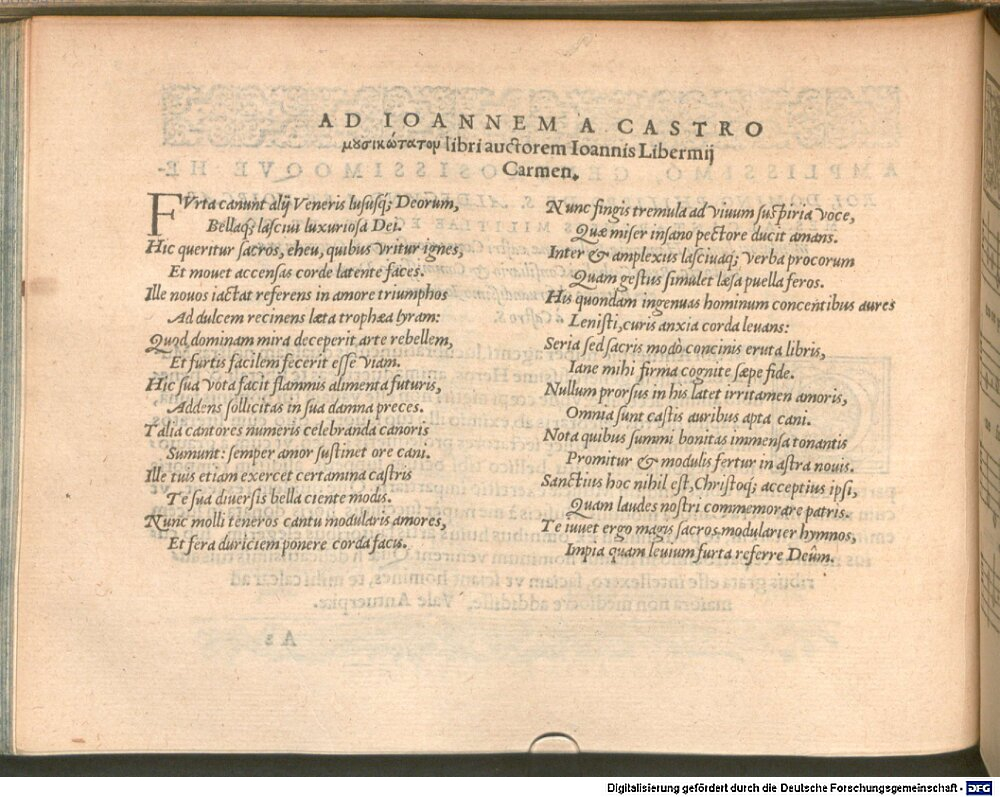 AD IOANNEM A CASTRO
μουσικώτατον libri auctorem Ioannis Libermij
Carmen.
FVrta canunt alij Veneris lususq; Deorum,
Bellaq; lasciui luxuriosa Dei.
Hic queritur sacros, eheu, quibus vritur ignes,
Et mouet accensas corde latente faces.
Ille nouos iactat referens in amore triumphos
Ad dulcem recinens læta trophæa lyram:
Quod dominam mira deceperit arte rebellem,
Et furtis facilem fecerit esse viam.
Hic sua vota facit flammis alimenta futuris,
Addens sollicitas in sua damna preces.
Talia cantores numeris celebranda canoris
Sumunt: semper amor sustinet ore cani.
Ille tuis etiam exercet certamina castris
Te sua diuersis bella ciente modis.
Nunc molli teneros cantu modularis amores,
Et fera duriciem ponere corda facis.
Nunc fingis tremula ad viuum suspiria voce,
Quæ miser insano pectore ducit amans.
Inter & amplexus lasciuaq; verba procorum
Quam gestius simulet læsa puella feros.
His quondam ingenuas hominum concentibus aures
Lenisti, curis anxia corda leuans:
Seria sed sacris modò concinis eruta libris,
Iane mihi firma cognite sæpe fide.
Nullum prorsus in his latet irritamen amoris,
Omnia sunt castis auribus apta cani.
Nota quibus summi bonitas immensa tonantis
Promitur & modulis fertur in astra nouis.
Sanctius hoc nihil est, Christoq; acceptius ipsi,
Quam laudes nostri commemorare patris.
Te iuuet ergo magis sacros modularier hymnos,
Impia quam leuium furta referre Deûm.
A 2
Digitalisierung gefördert durch die Deutsche Forschungsgemeinschaft - DFG